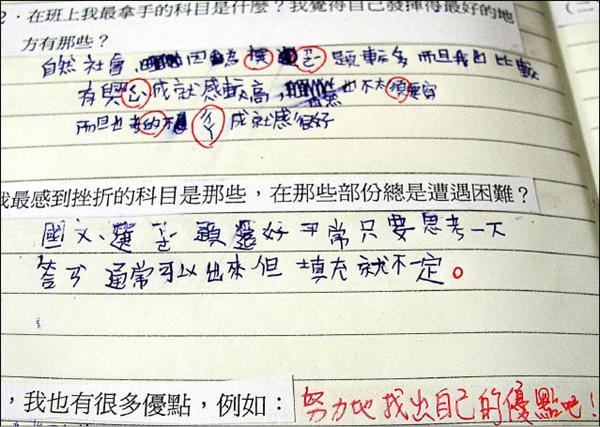 2．在班上我最拿手的科目是什麼？我覺得自己發揮得最好的地
方有那些？
自然 社會， 因為 選 題較多 而且我也比較
有興 成就感較高， 也不太須要
而且也考的不 成就感很好
我最感到挫折的科目是那些，在那些部份總是遭遇困難？
國文、選 題還好 平常只要思考一下
答 通常可以出來但 填充就不一定。
，我也有很多優點，例如：努力地找出自己的優點吧！